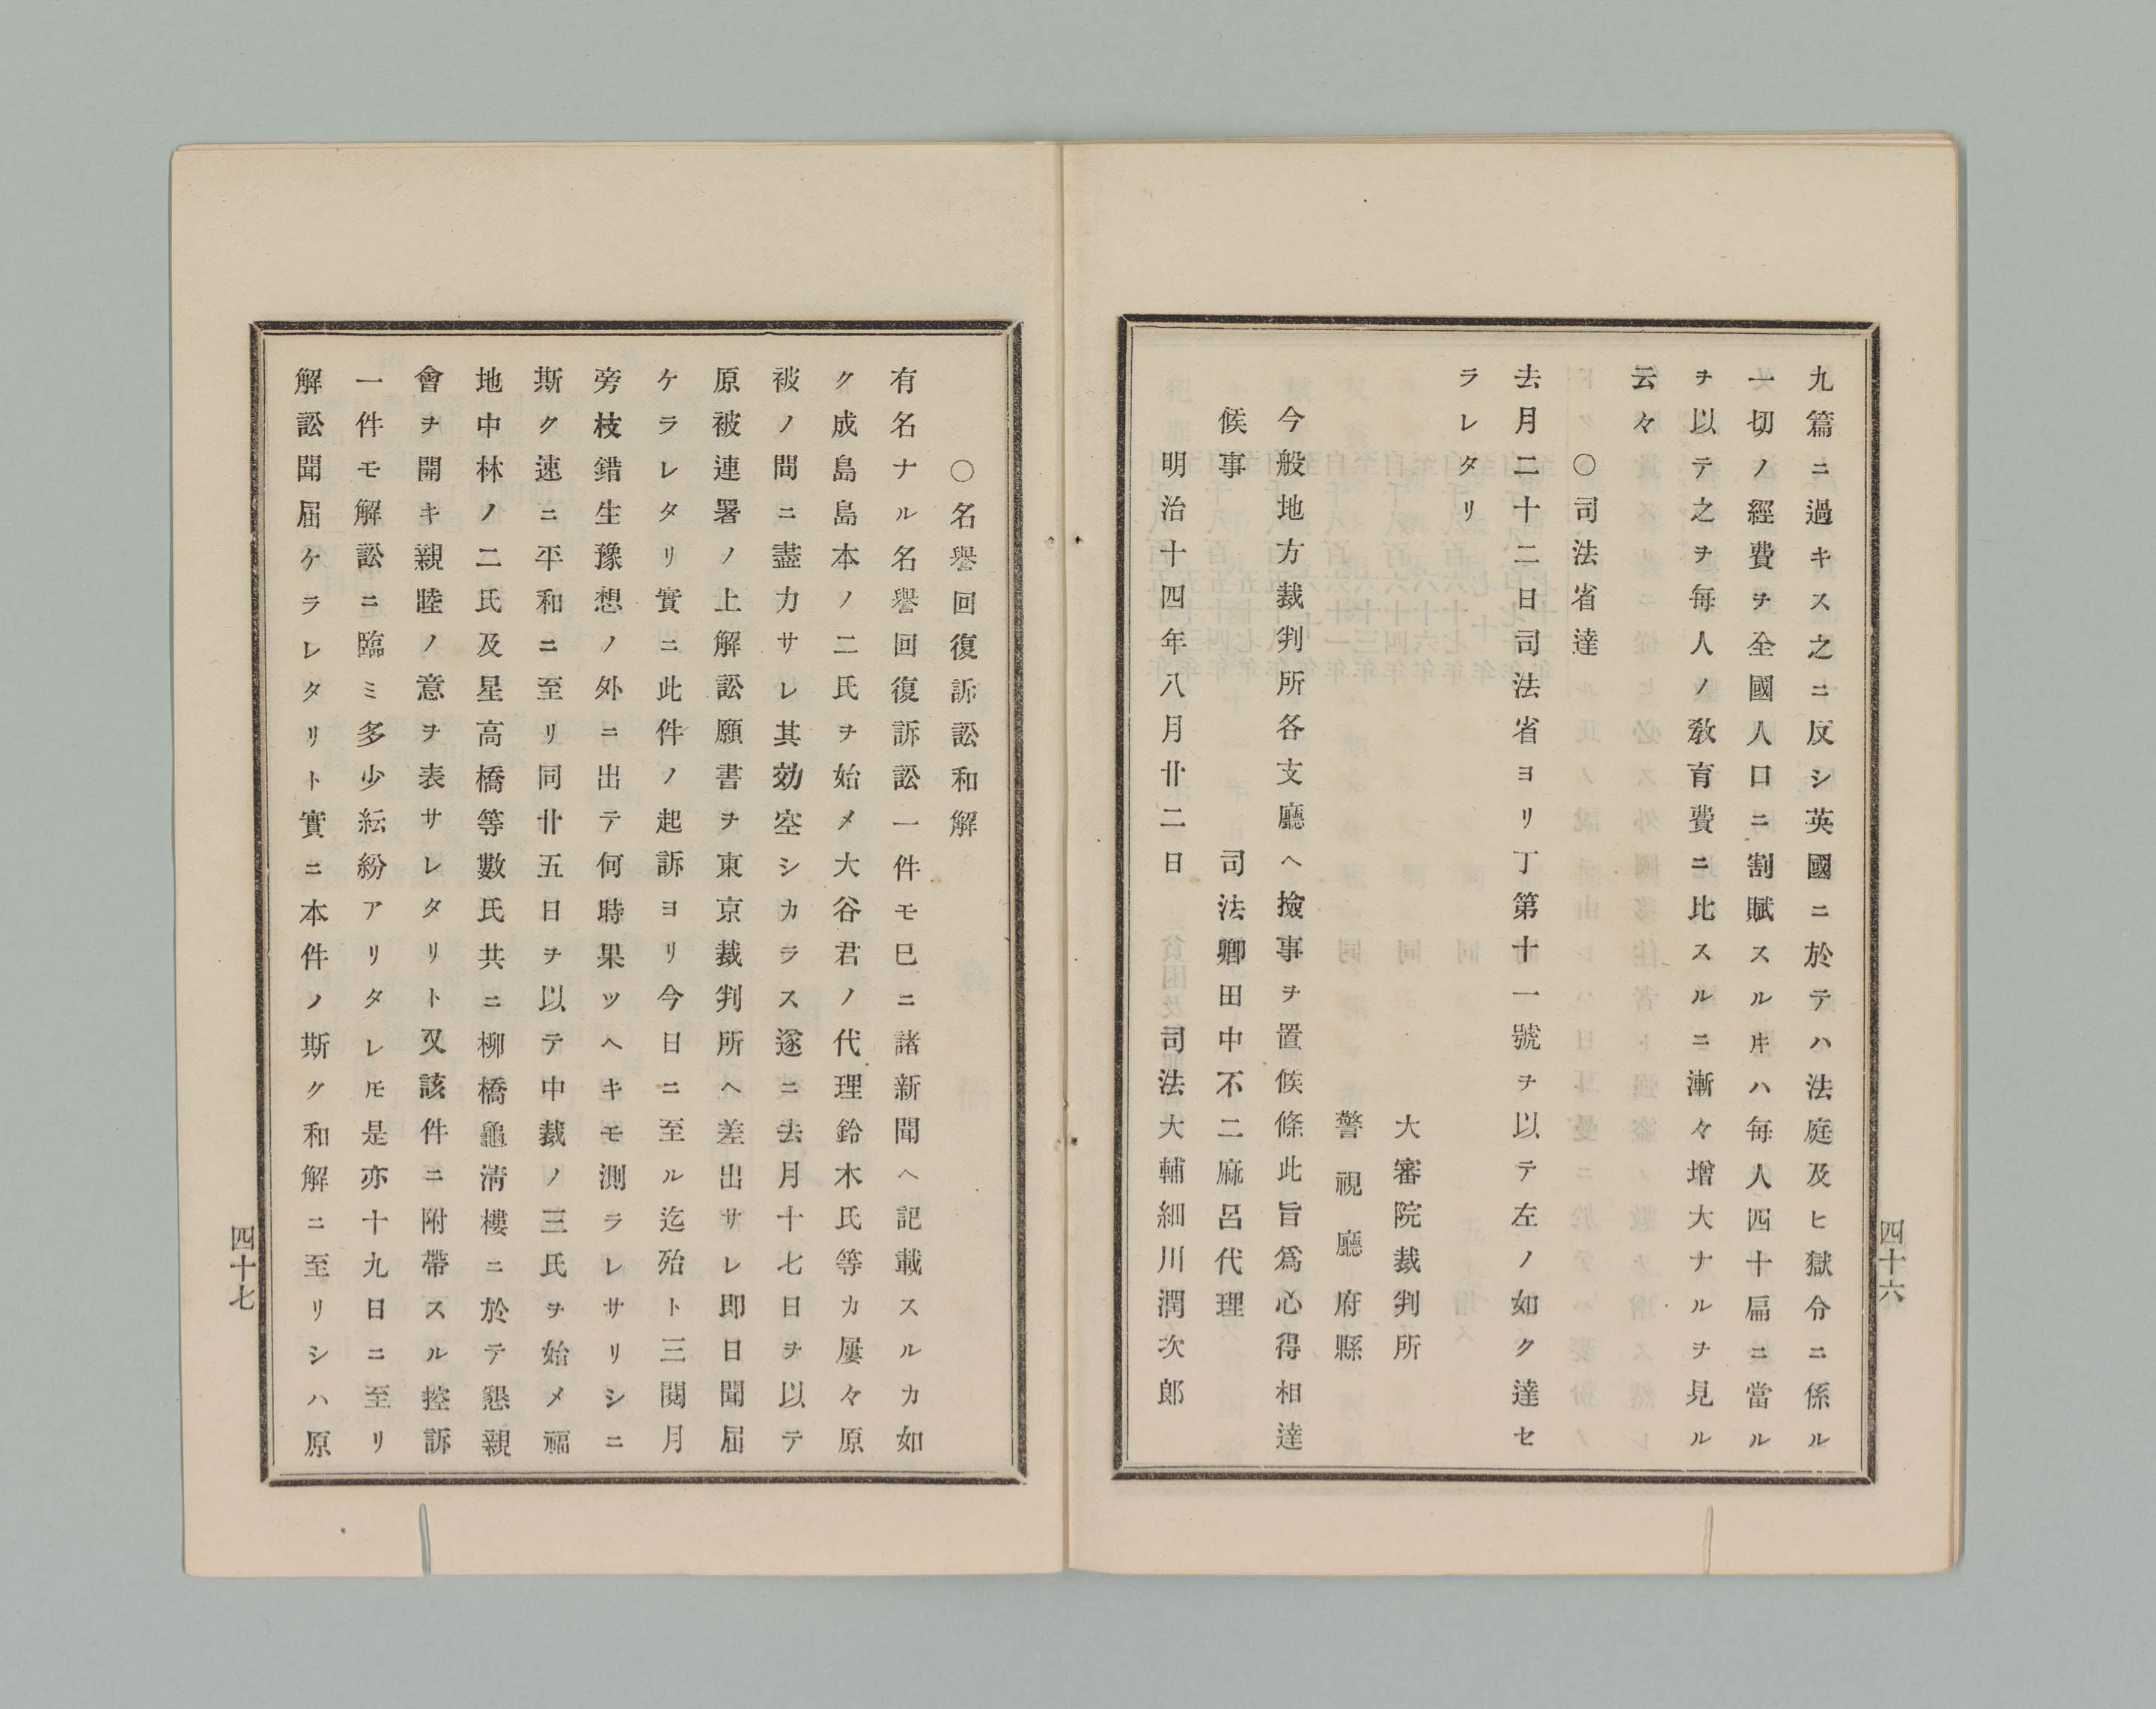 九篇ニ過キス之ニ反シ英國ニ於テハ法庭及ヒ獄令ニ係ル
一切ノ經費ヲ全國人口ニ割賦スルㇳキハ每人四十扁ニ當ル
ヲ以テ之ヲ每人ノ敎育費ニ比スルニ漸々增大ナルヲ見ル
云々
○司法省達
去月二十二日司法省ヨリ丁第十一號ヲ以テ左ノ如ク達セ
ラレタリ
大審院裁判所
警視廳府縣
今般地方裁判所各支廳ヘ撿事ヲ置候條此旨爲心得相達
候事
司法卿田中不二麻呂代理
明治十四年八月廿二日 司法大輔細川潤次郎
四十六
○名譽回復訴訟和解
有名ナル名譽回復訴訟一件モ已ニ諸新聞ヘ記載スルカ如
ク成島島本ノ二氏ヲ始メ大谷君ノ代理鈴木氏等カ屢々原
被ノ間ニ盡力サレ其効空シカラス遂ニ去月十七日ヲ以テ
原被連署ノ上解訟願書ヲ東京裁判所ヘ差出サレ卽日聞届
ケラレタリ實ニ此件ノ起訴ヨリ今日ニ至ル迄殆ト三閱月
旁枝錯生豫想ノ外ニ出テ何時果ツヘキモ測ラレサリシニ
斯ク速ニ平和ニ至リ同廿五日ヲ以テ中裁ノ三氏ヲ始メ福
地中林ノ二氏及星高橋等數氏共ニ柳橋龜淸樓ニ於テ懇親
會ヲ開キ親睦ノ意ヲ表サレタリト又該件ニ附帶スル控訴
一件モ解訟ニ臨ミ多少紜紛アリタレㇳモ是亦十九日ニ至リ
解訟聞届ケラレタリト實ニ本件ノ斯ク和解ニ至リシハ原
四十七